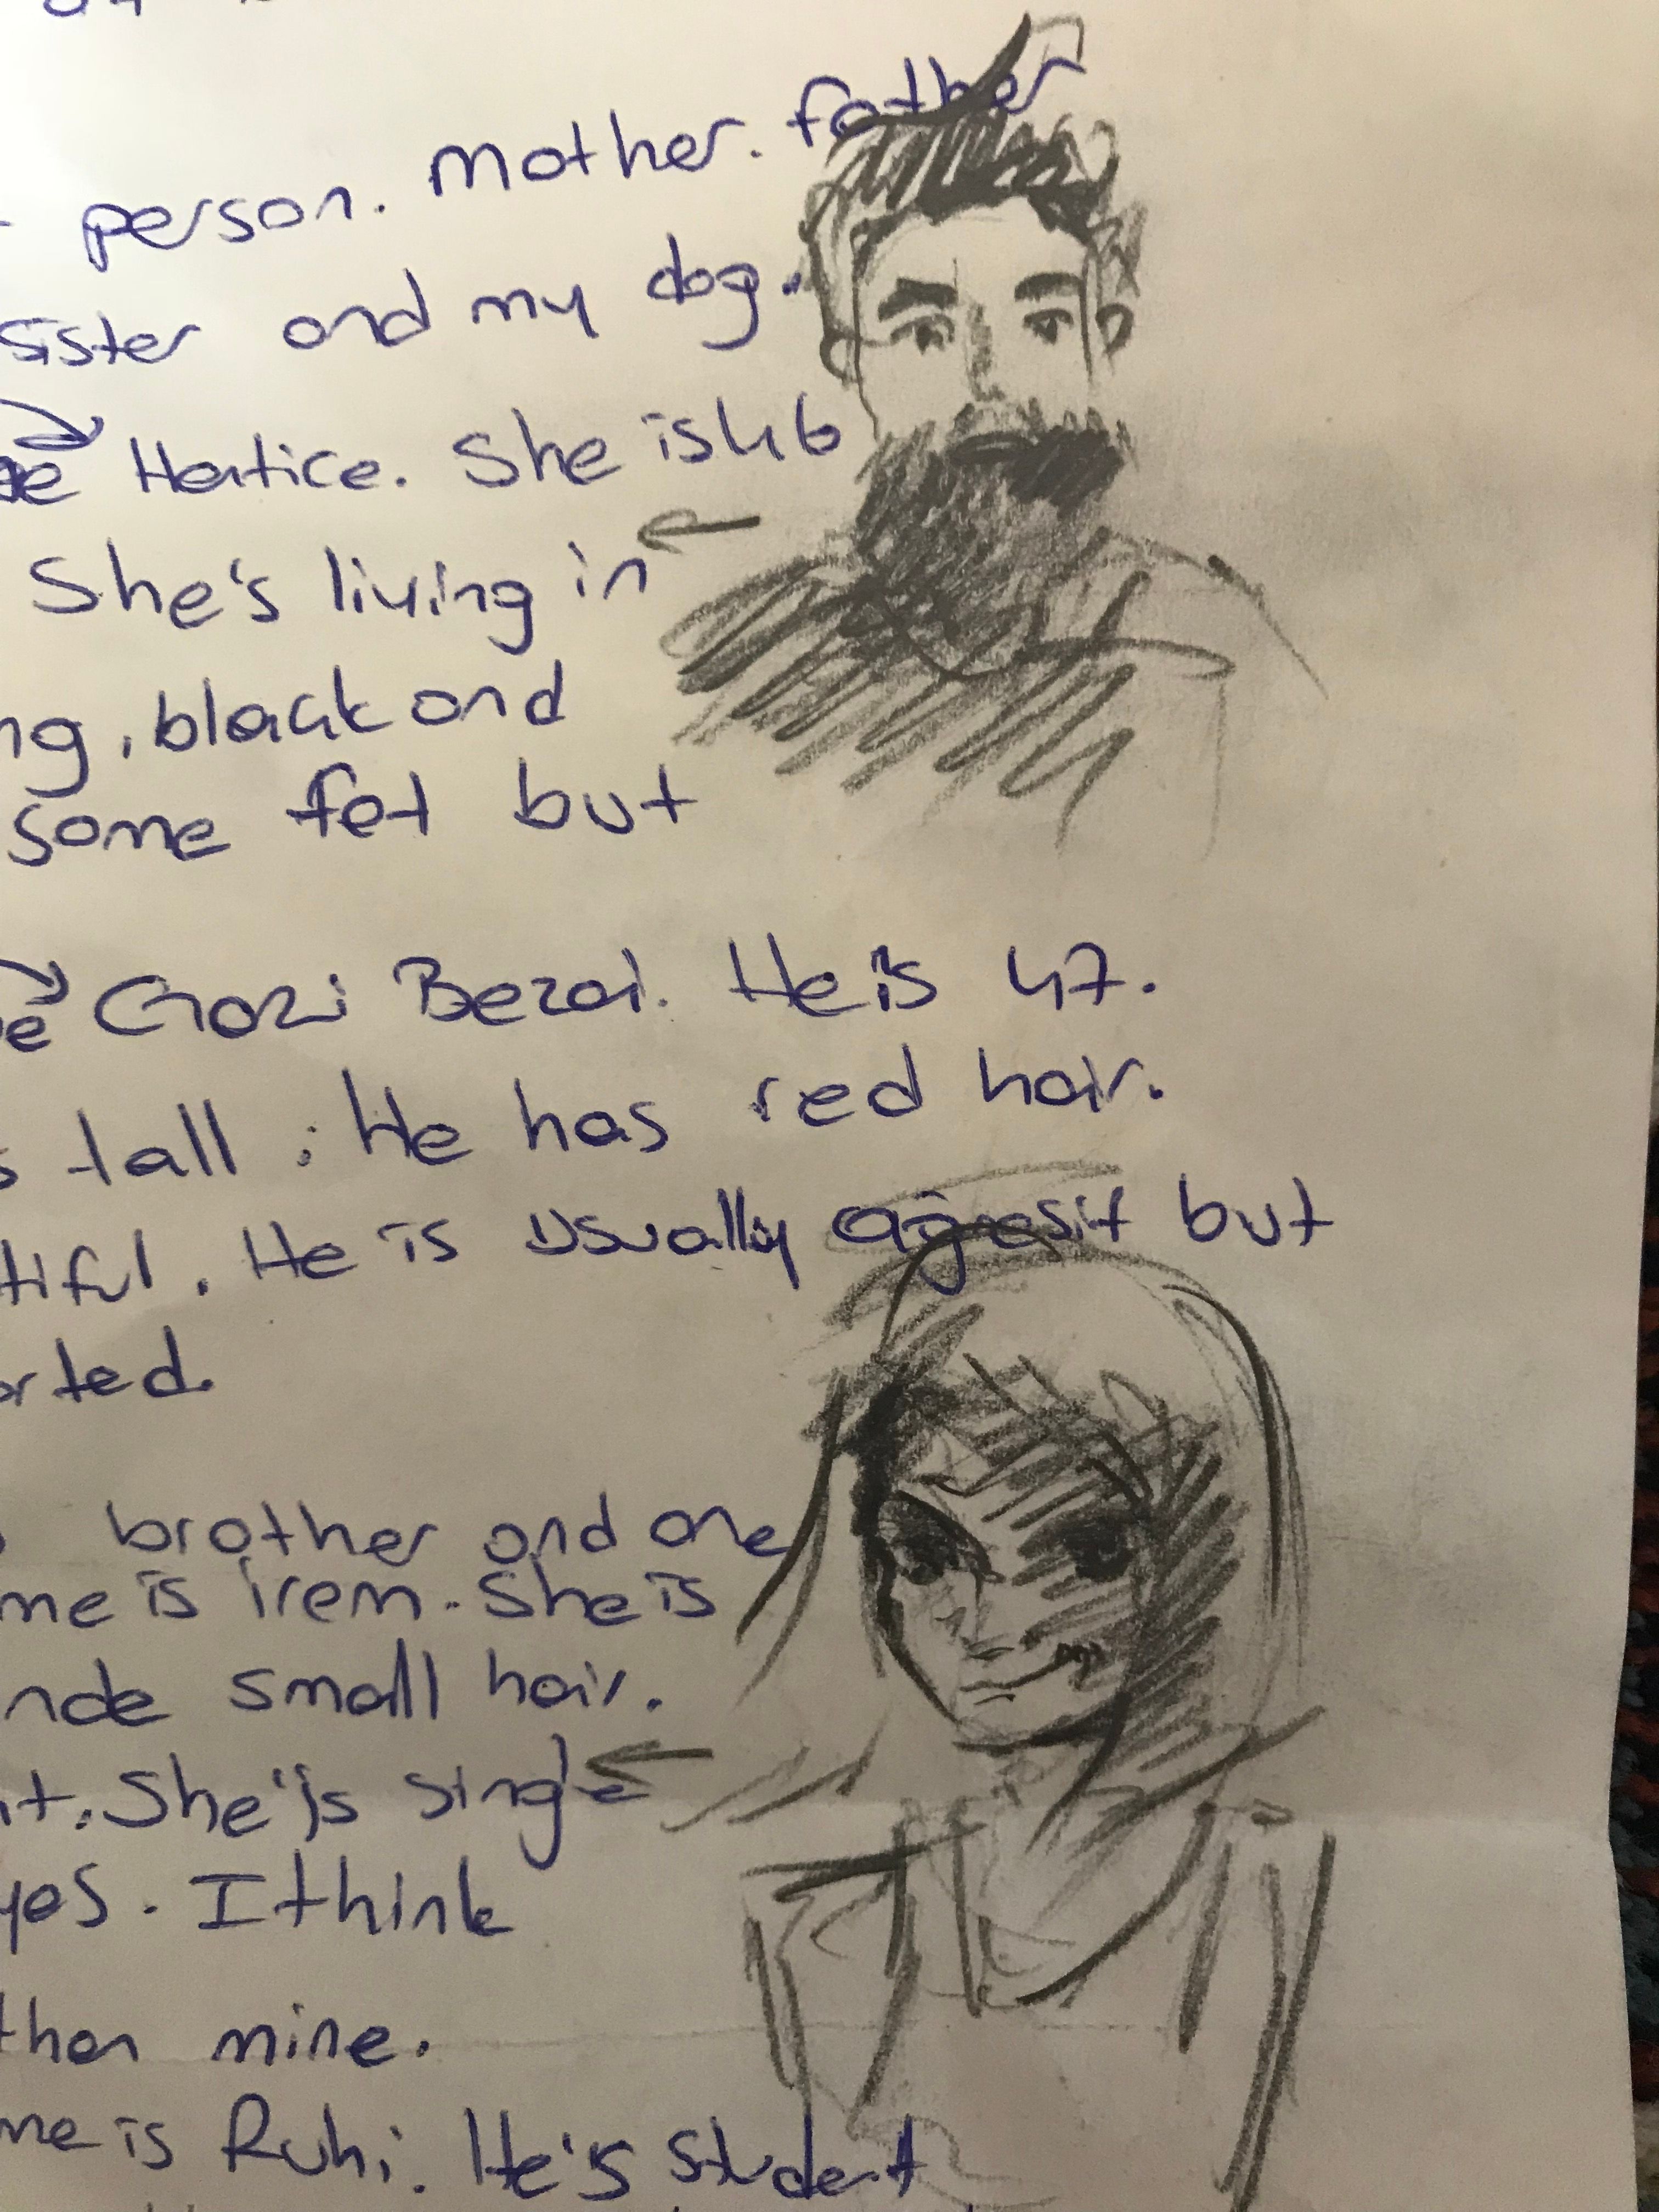 person. mother. father
sister and my dog.
Hatice. She is 46
She's living in
, black and
some fet but
Gazi Bezai. He is 47.
tall . He has red hair.
. He is usually agresif but
brother and one
is irem. She is
small hair.
. She is single
. I think
than mine.
me is Ruhi. He's student